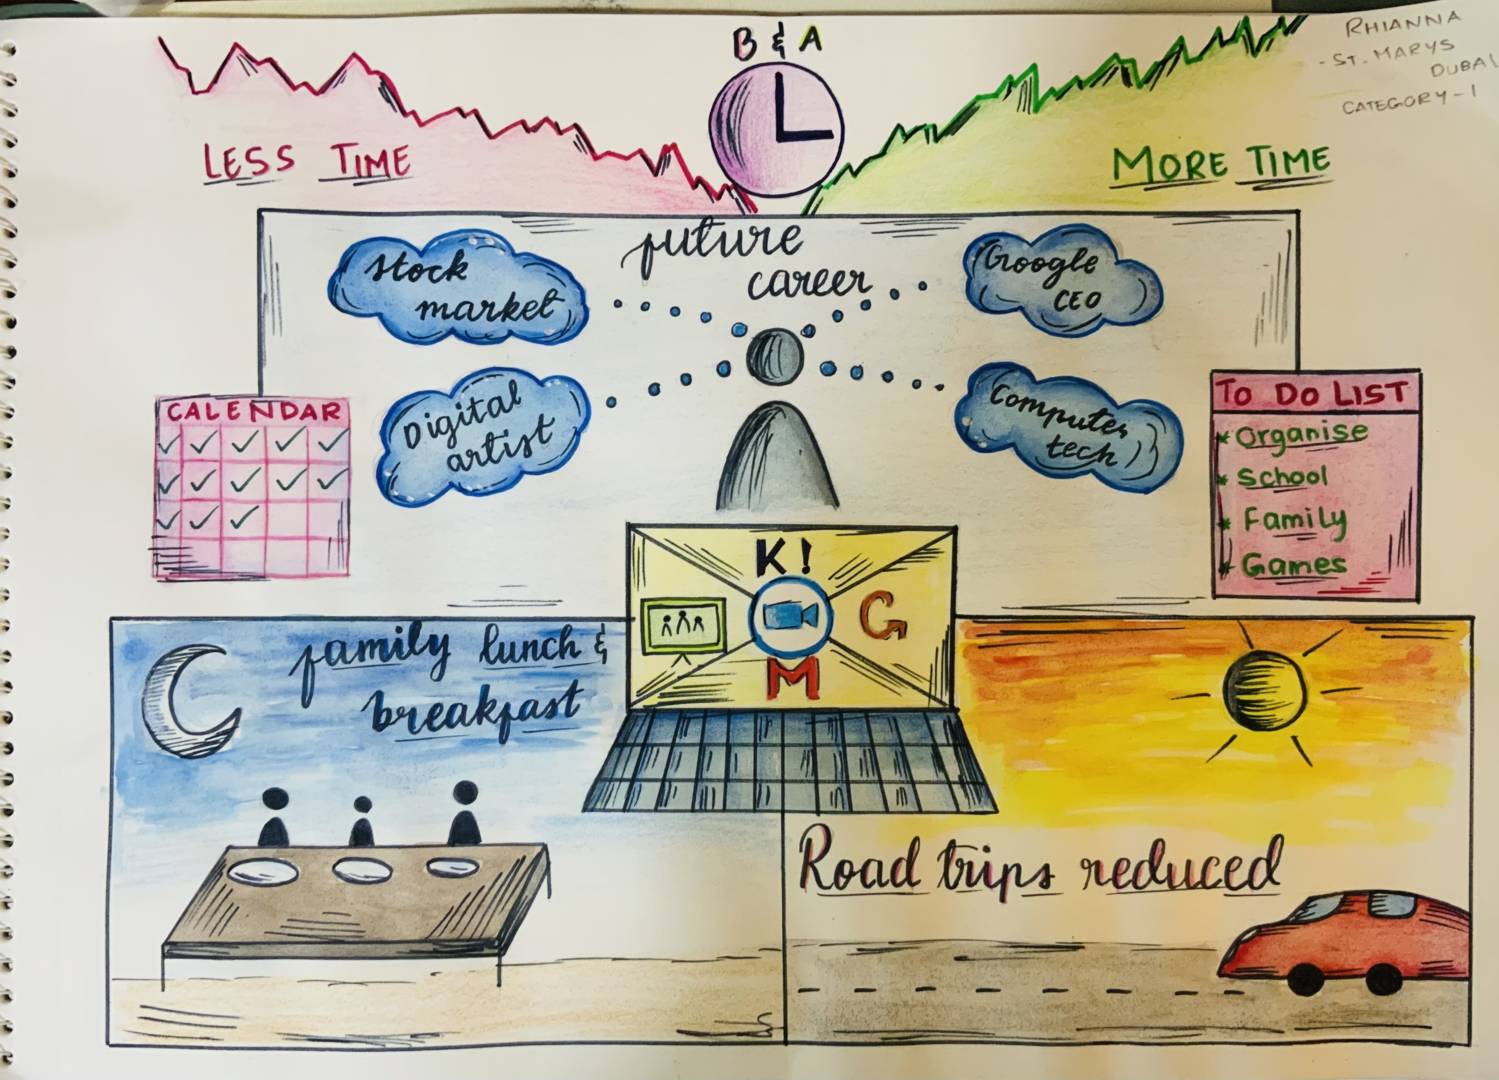 B & A
RHIANNA
- ST. MARYS
DUBAI
CATEGORY-1
LESS TIME
MORE TIME
future
career
Stock
market
Google
CEO
Digital
artist
Computer
tech
CALENDAR
TO DO LIST
* Organise
* School
* Family
* Games
K!
G
M
family lunch &
breakfast
Road trips reduced